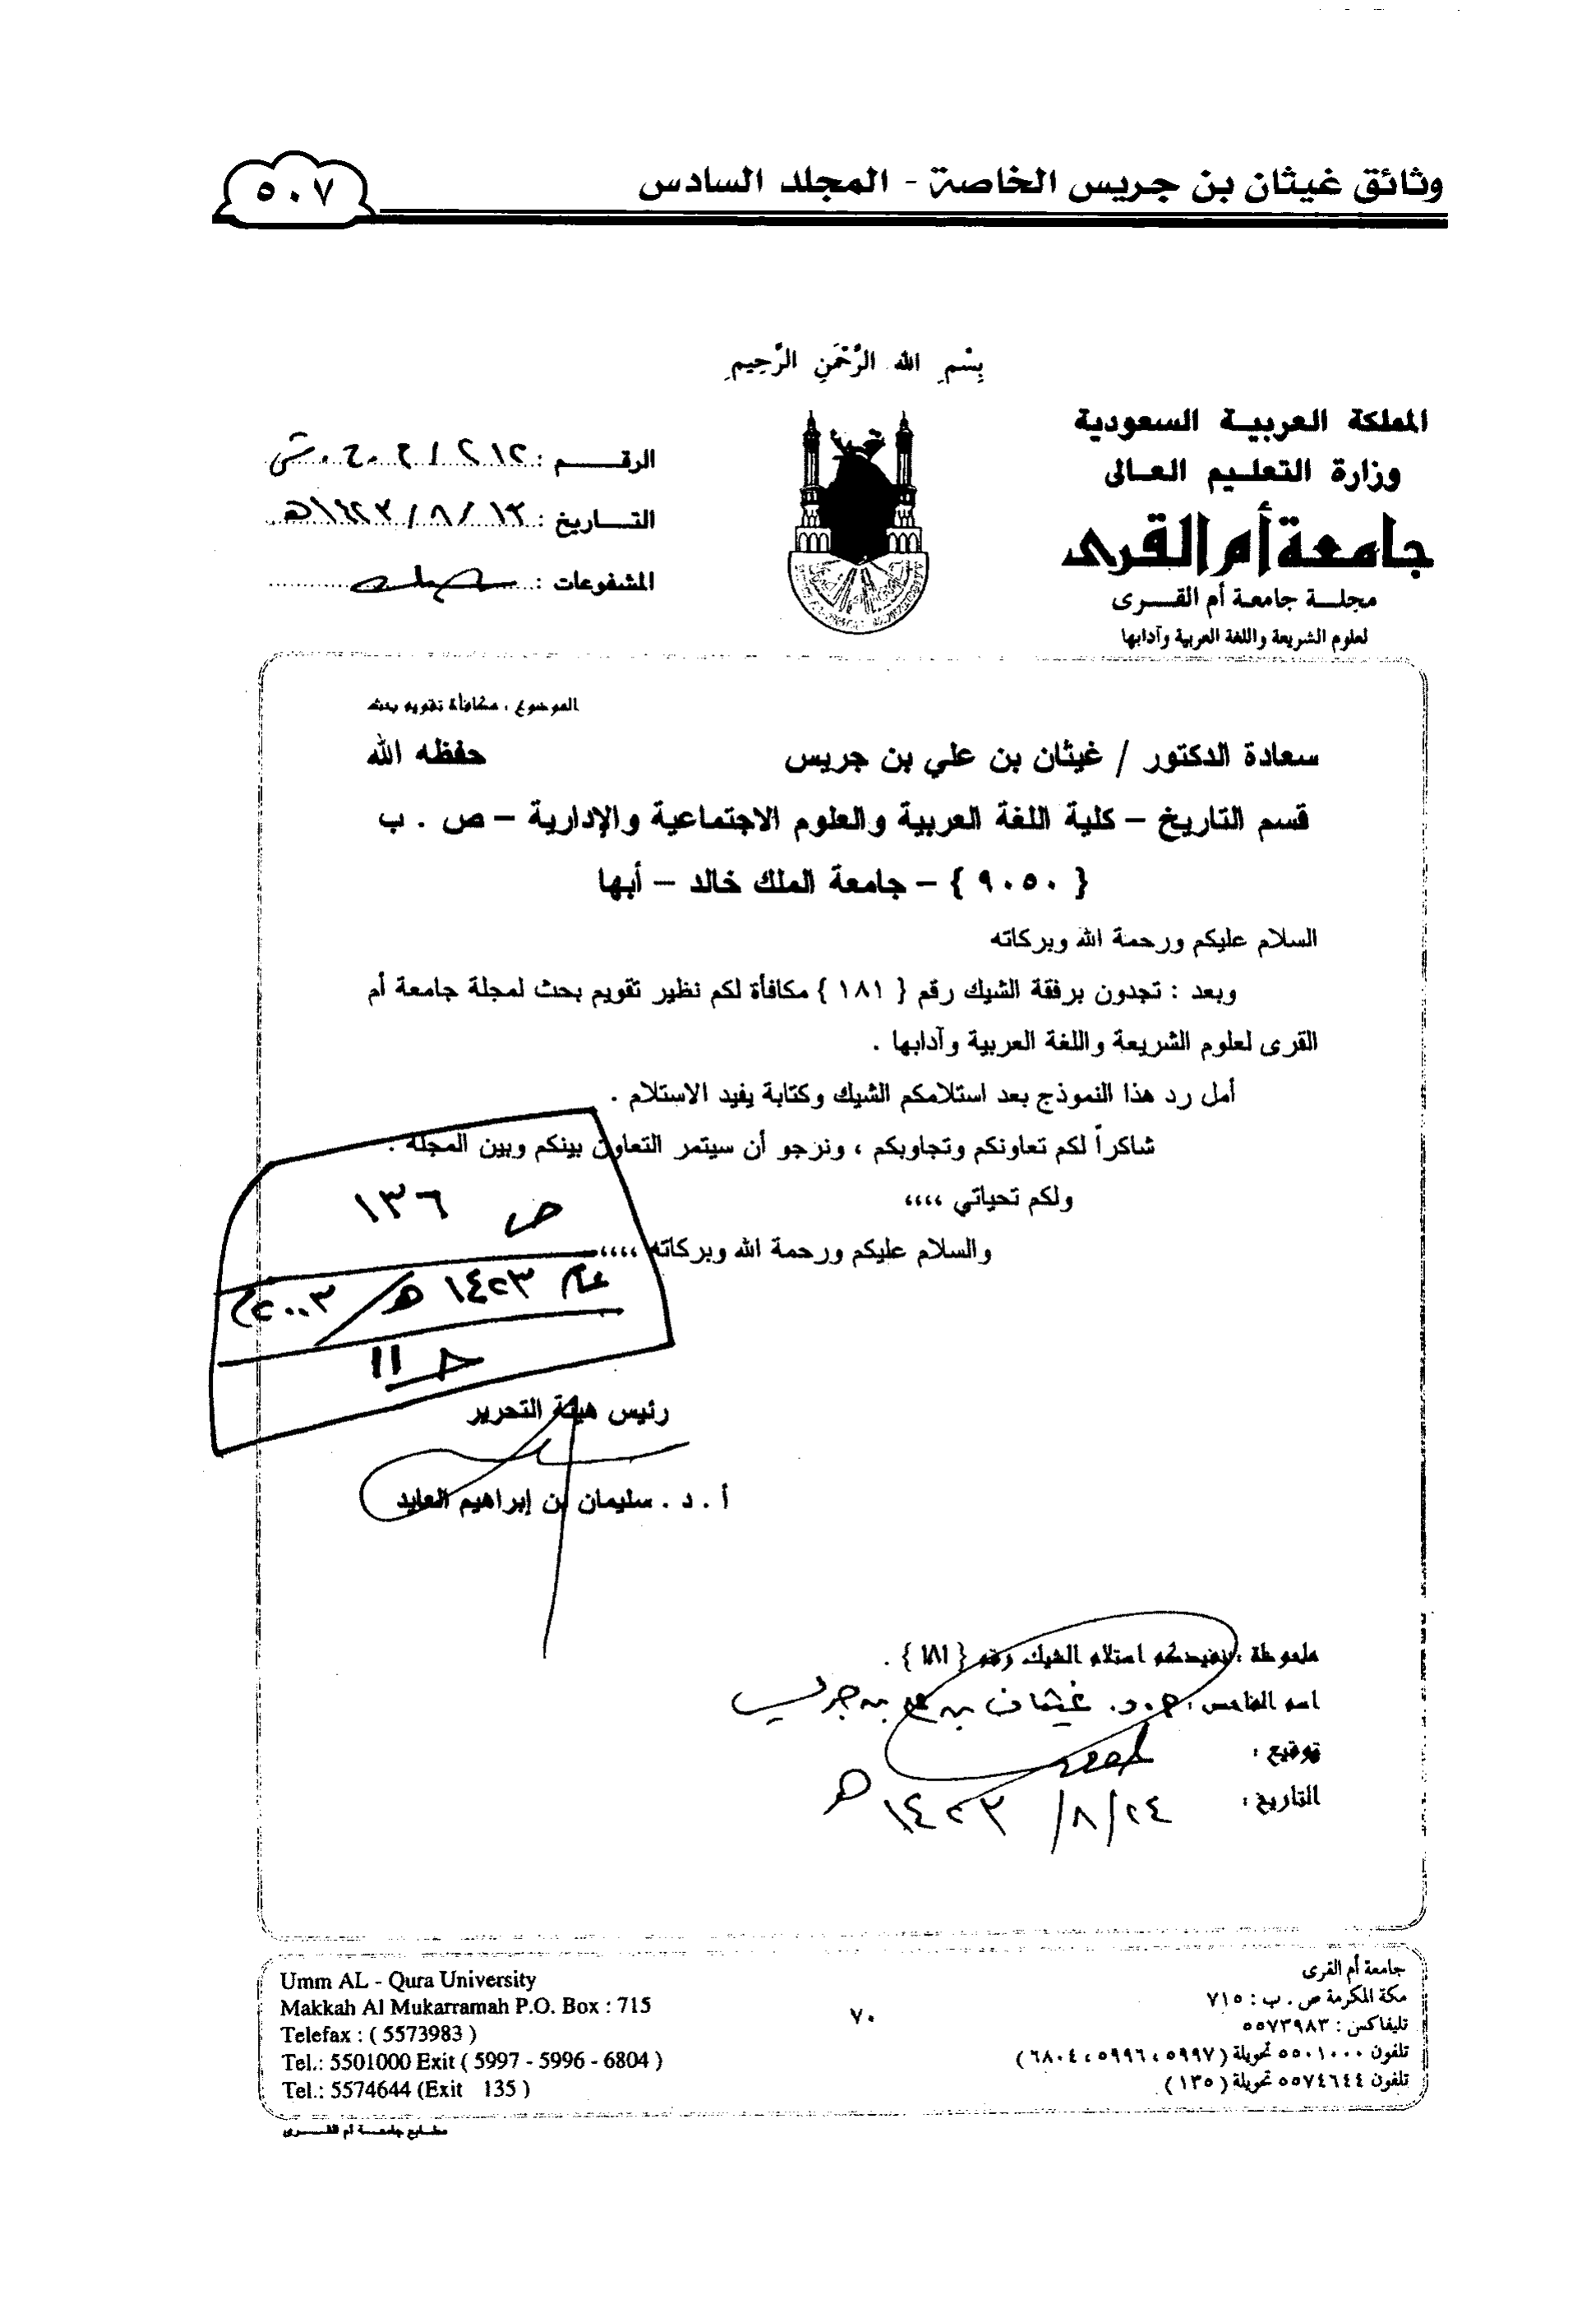 وثائق غيثان بن جريس الخاصة - المجلد السادس
٥٠٧
بِسْمِ الله الرَّحْمَنِ الرَّحِيمِ
المملكة العربية السعودية
وزارة التعليم العالى
جامعة أم القرى
مجلة جامعة أم القرى
لعلوم الشريعة واللغة العربية وآدابها
الرقم :
التاريخ : ١٣ / ٨ / ١٤٢٣هـ
المشفوعات :
الموضوع : مكافأة تقويم بحث
سعادة الدكتور / غيثان بن علي بن جريس حفظه الله
قسم التاريخ – كلية اللغة العربية والعلوم الاجتماعية والإدارية – ص . ب
{ ٩٠٥٠ } – جامعة الملك خالد – أبها
السلام عليكم ورحمة الله وبركاته
وبعد : تجدون برفقة الشيك رقم { ١٨١ } مكافأة لكم نظير تقويم بحث لمجلة جامعة أم
القرى لعلوم الشريعة واللغة العربية وآدابها .
أمل رد هذا النموذج بعد استلامكم الشيك وكتابة يفيد الاستلام .
شاكراً لكم تعاونكم وتجاوبكم ، ونرجو أن سيتمر التعاون بينكم وبين المجلة .
ولكم تحياتي ،،،،
والسلام عليكم ورحمة الله وبركاته ،،،،
ص ١٣٦
عام ١٤٢٣ هـ / ٢٠٠٣م
حـ ١١
رئيس هيئة التحرير
أ . د . سليمان بن إبراهيم العايد
ملحوظة : نفيدكم استلام الشيك رقم { ١٨١ } .
اسم الفاحص : أ.د. غيثان بن علي بن جريس
توقيع :
التاريخ : ٢٤ / ٨ / ١٤٢٣ هـ
جامعة أم القرى
مكة المكرمة ص . ب : ٧١٥
تليفاكس : ٥٥٧٣٩٨٣
تلفون ٥٥٠١٠٠٠ تحويلة ( ٥٩٩٧ ، ٥٩٩٦ ، ٦٨٠٤ )
تلفون ٥٥٧٤٦٤٤ تحويلة ( ١٣٥ )
٧٠
Umm AL - Qura University
Makkah Al Mukarramah P.O. Box : 715
Telefax : ( 5573983 )
Tel.: 5501000 Exit ( 5997 - 5996 - 6804 )
Tel.: 5574644 (Exit 135 )
مطابع جامعة أم القرى